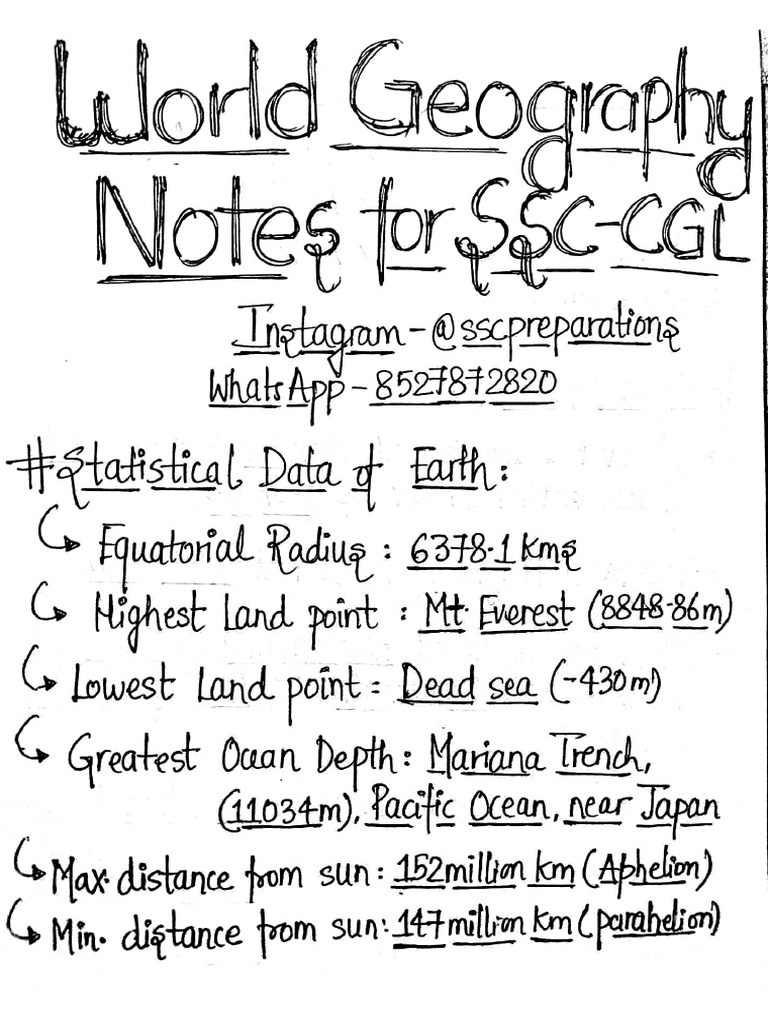 World Geography
Notes for SSC-CGL
Instagram - @sscpreparations
WhatsApp - 8527872820
#Statistical Data of Earth:
Equatorial Radius : 6378.1 kms
Highest Land point : Mt. Everest (8848.86m)
Lowest Land point : Dead sea (-430m)
Greatest Ocean Depth : Mariana Trench,
(11034m), Pacific Ocean, near Japan
Max. distance from sun : 152million km (Aphelion)
Min. distance from sun : 147 million km (parahelion)